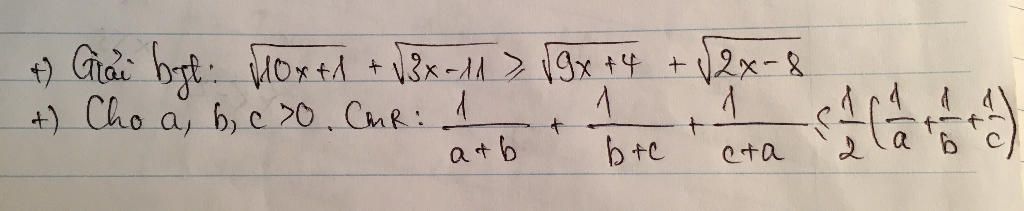 +) Giải bpt: √10x+1 + √3x-11 ≥ √9x+4 + √2x-8
+) Cho a, b, c >0. CmR: 1/(a+b) + 1/(b+c) + 1/(c+a) ≤ 1/2 (1/a + 1/b + 1/c)